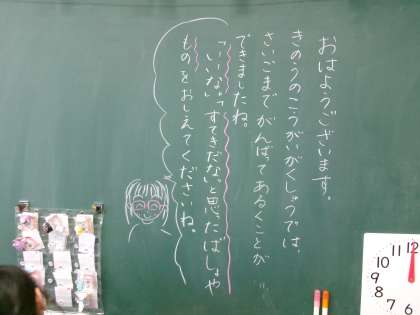 おはようございます。
きのうのこうがいがくしゅうでは、
さいごまでがんばってあるくことが
できましたね。
「いいな」「すてきだな」と思ったばしょや
ものをおしえてくださいね。
12
11
10
9
8
7
6